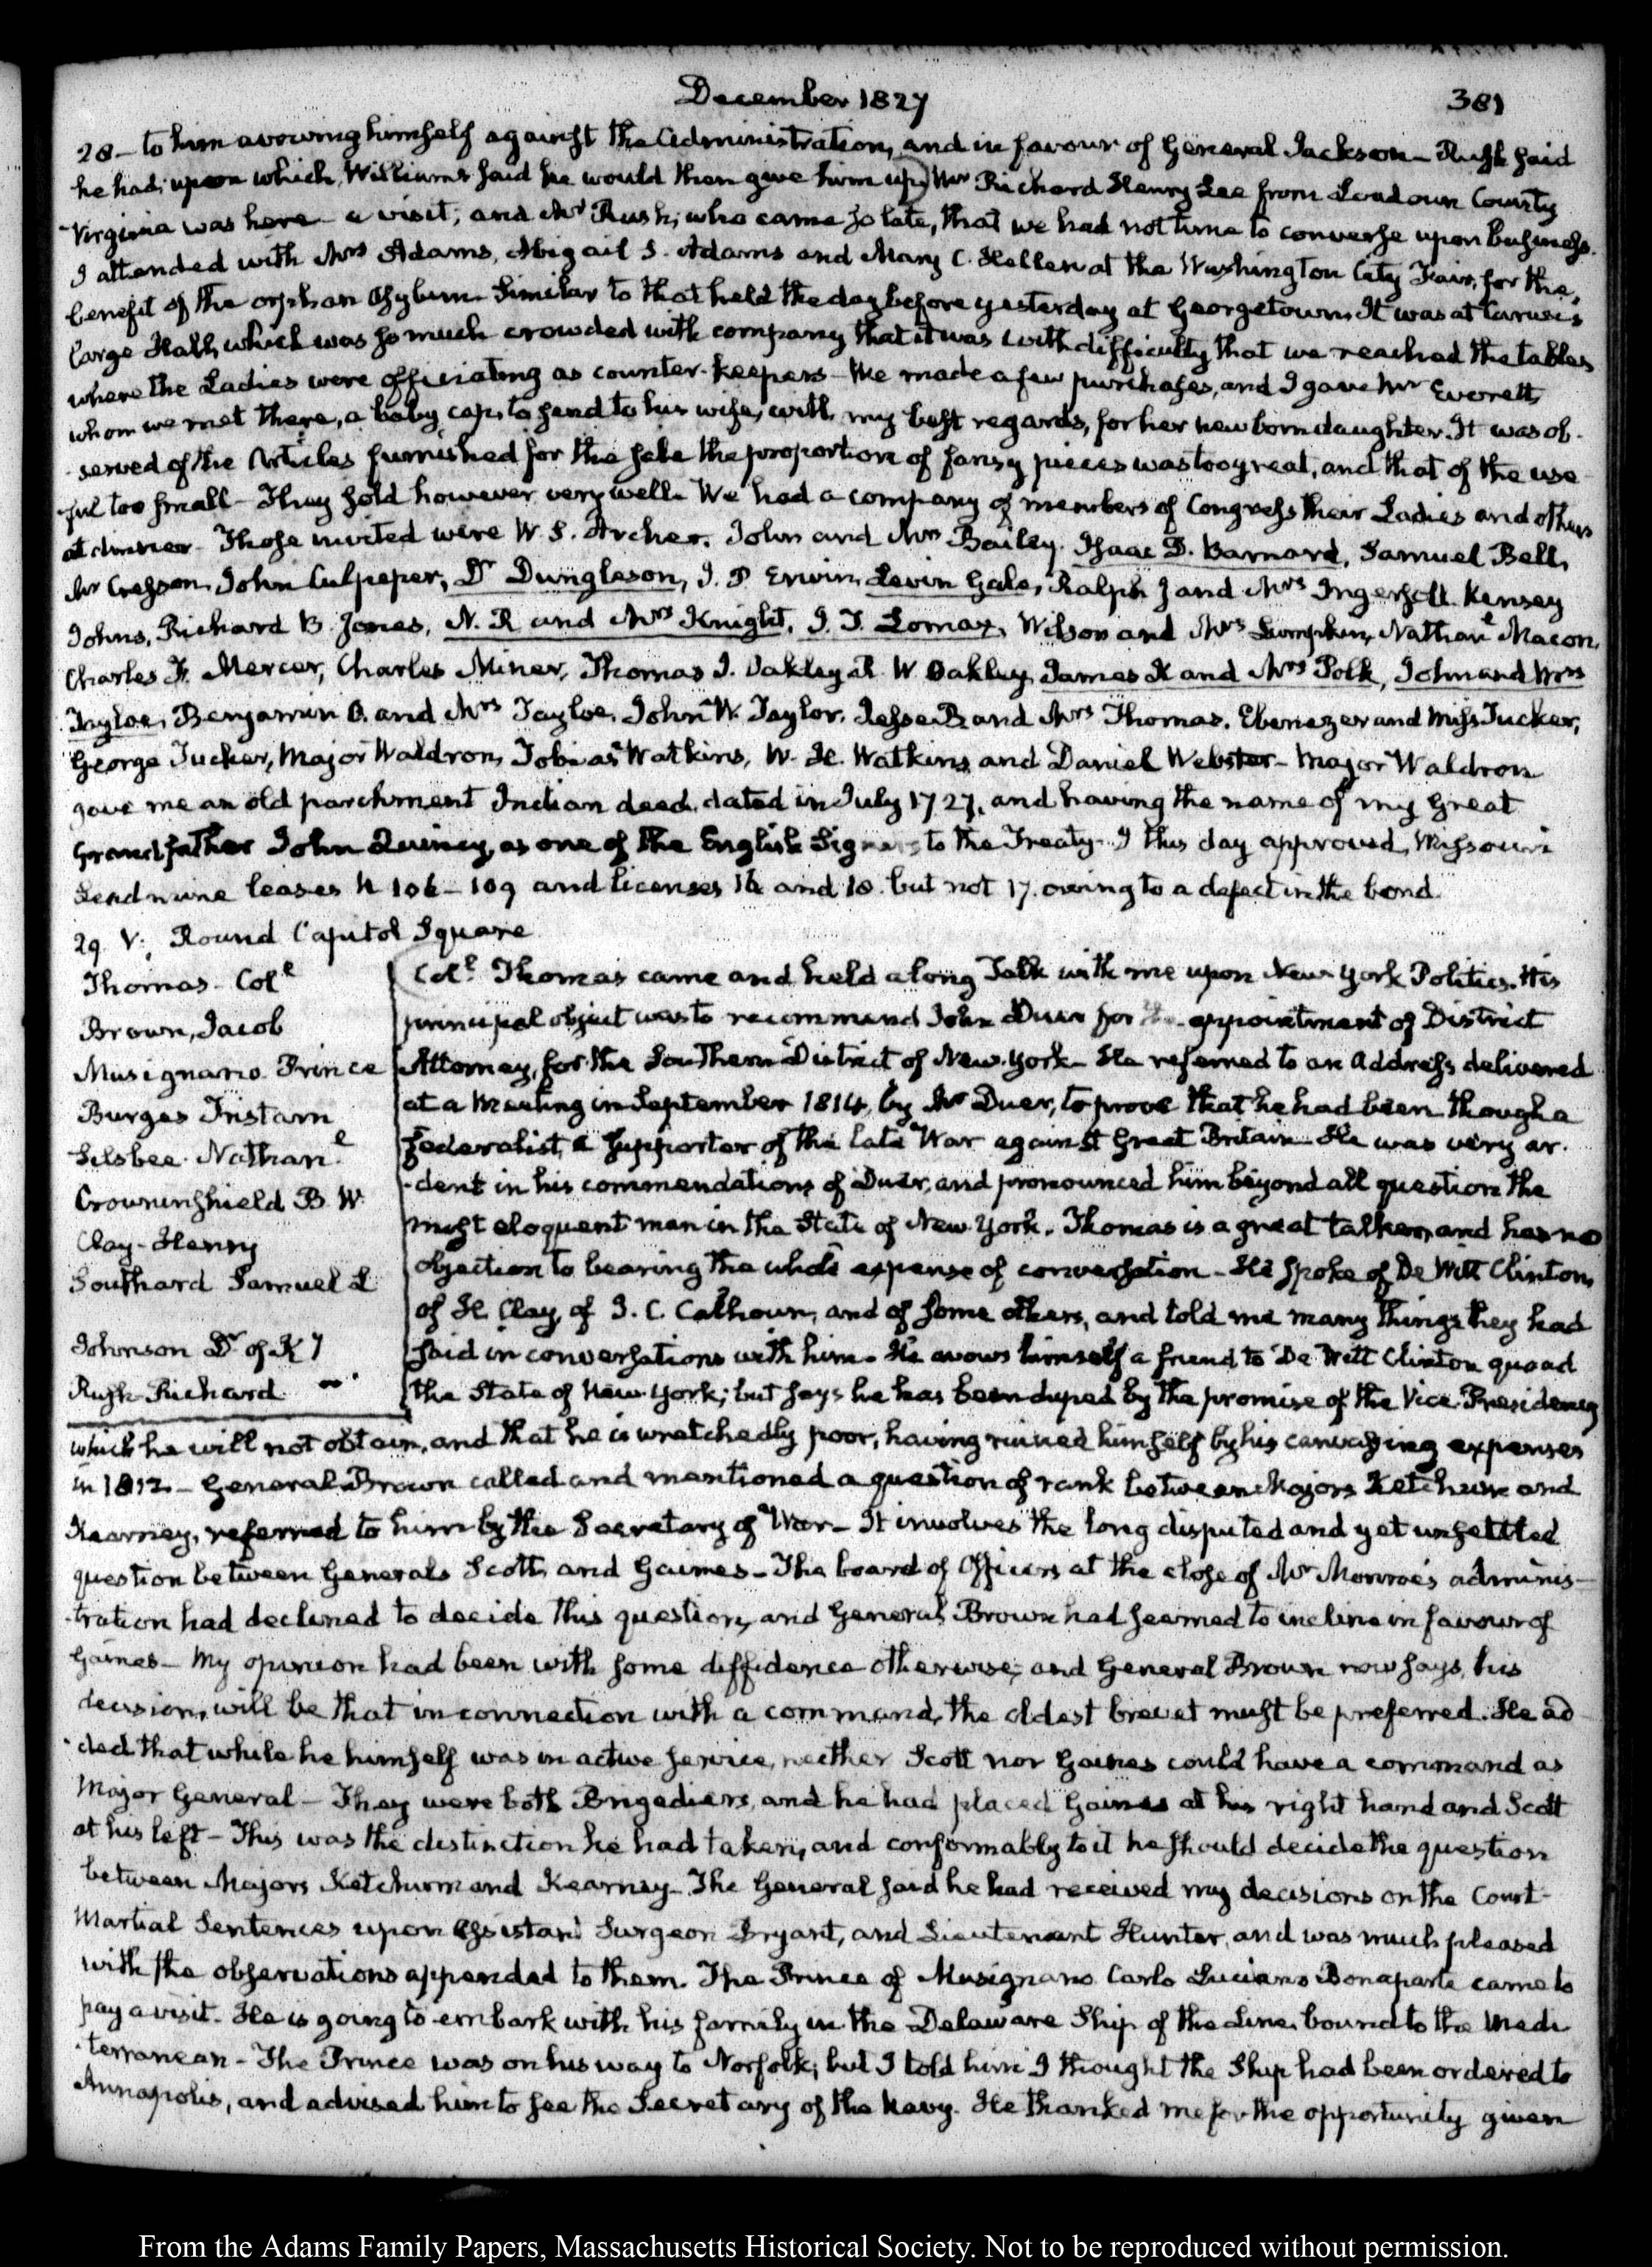 December 1827
381
28 – to him avowing himself against the Administration, and in favour of General Jackson – Rush said
he had; upon which, Williams said he would then give him up) Mr Richard Henry Lee from Loudoun County
Virginia was here – a visit; and Mr Rush; who came so late, that we had not time to converse upon business.
I attended with Mrs Adams, Abigail S. Adams and Mary C. Hellen at the Washington City Fair, for the
benefit of the orphan Asylum – Similar to that held the day before yesterday at Georgetown. It was at Carusi's
large Hall, which was so much crowded with company that it was with difficulty that we reached the tables
where the Ladies were officiating as counter-keepers – We made a few purchases, and I gave Mr Everett,
whom we met there, a baby cap, to send to his wife, with my best regards, for her new born daughter. It was ob-
-served of the Articles furnished for the sale the proportion of fancy pieces was too great, and that of the use
-ful too small – They sold however very well. We had a company of members of Congress their Ladies and others
at dinner – Those invited were W. S. Archer, John and Mrs Bailey, Isaac D. Barnard, Samuel Bell,
Mr Cresson, John Culpeper, Dr Dunglison, J. P. Erwin, Levin Gale, Ralph J and Mrs Ingersoll, Kensey
Johns, Richard B. Jones, N. R and Mrs Knight, J. T. Lomax, Wilson and Mrs Lumpkin, Nathanl Macon,
Charles F. Mercer, Charles Miner, Thomas J. Oakley, R. W Oakley, James K and Mrs Polk, John and Mrs
Tayloe, Benjamin O. and Mrs Tayloe, John W. Taylor, Jesse B and Mrs Thomas, Ebenezer and Miss Tucker,
George Tucker, Major Waldron, Tobias Watkins, W. H. Watkins, and Daniel Webster – Major Waldron
gave me an old parchment Indian deed, dated in July 1727, and having the name of my Great
Grandfather John Quincy, as one of the English Signers to the Treaty – I this day approved, Missouri
Lead mine leases N 106 – 109 and licenses 16 and 18. but not 17. owing to a defect in the bond.
29. V: Round Capitol Square
Thomas – Coll
Brown, Jacob
Musignano Prince
Burges Tristam
Silsbee. Nathanl
Crowninshield B. W
Clay – Henry
Southard Samuel L
Johnson Dr of Ky
Rush – Richard
Coll Thomas came and held a long Talk with me upon New York Politics. His
principal object was to recommend John Duer for the appointment of District
Attorney, for the Southern District of New-York – He referred to an Address delivered
at a Meeting in September 1814, by Mr Duer, to prove that he had been though a
federalist, a supporter of the late War against Great Britain – He was very ar-
-dent in his commendations of Duer, and pronounced him beyond all question the
most eloquent man in the State of New York. Thomas is a great talker, and has no
objection to bearing the whole expense of conversation – He spoke of De Witt Clinton,
of H. Clay, of J. C. Calhoun, and of some others, and told me many things they had
said in conversations with him. He avows himself a friend to De Witt Clinton quoad
the State of New York; but says he has been duped by the promise of the Vice-Presidency
which he will not obtain, and that he is wretchedly poor, having ruined himself by his canvassing expenses
in 1812. – General Brown called and mentioned a question of rank between Majors Ketchum and
Kearney, referred to him by the Secretary of War – It involves the long disputed and yet unsettled
question between Generals Scott, and Gaines – The board of Officers at the close of Mr Monroe's adminis-
-tration had declined to decide this question, and General Brown had seemed to incline in favour of
Gaines – My opinion had been with some diffidence otherwise; and General Brown now says, his
decision, will be that in connection with a command, the oldest brevet must be preferred. He ad
-ded that while he himself was in active service, neither Scott nor Gaines could have a command as
Major General – They were both Brigadiers, and he had placed Gaines at his right hand and Scott
at his left – This was the distinction he had taken, and conformably to it he should decide the question
between Majors Ketchum and Kearney – The General said he had received my decisions on the Court-
Martial Sentences upon Assistant Surgeon Bryant, and Lieutenant Hunter, and was much pleased
with the observations appended to them. The Prince of Musignano Carlo Luciano Bonaparte came to
pay a visit. He is going to embark with his family in the Delaware Ship of the Line, bound to the Medi
-terranean – The Prince was on his way to Norfolk; but I told him I thought the Ship had been ordered to
Annapolis, and advised him to see the Secretary of the Navy. He thanked me for the opportunity given
From the Adams Family Papers, Massachusetts Historical Society. Not to be reproduced without permission.